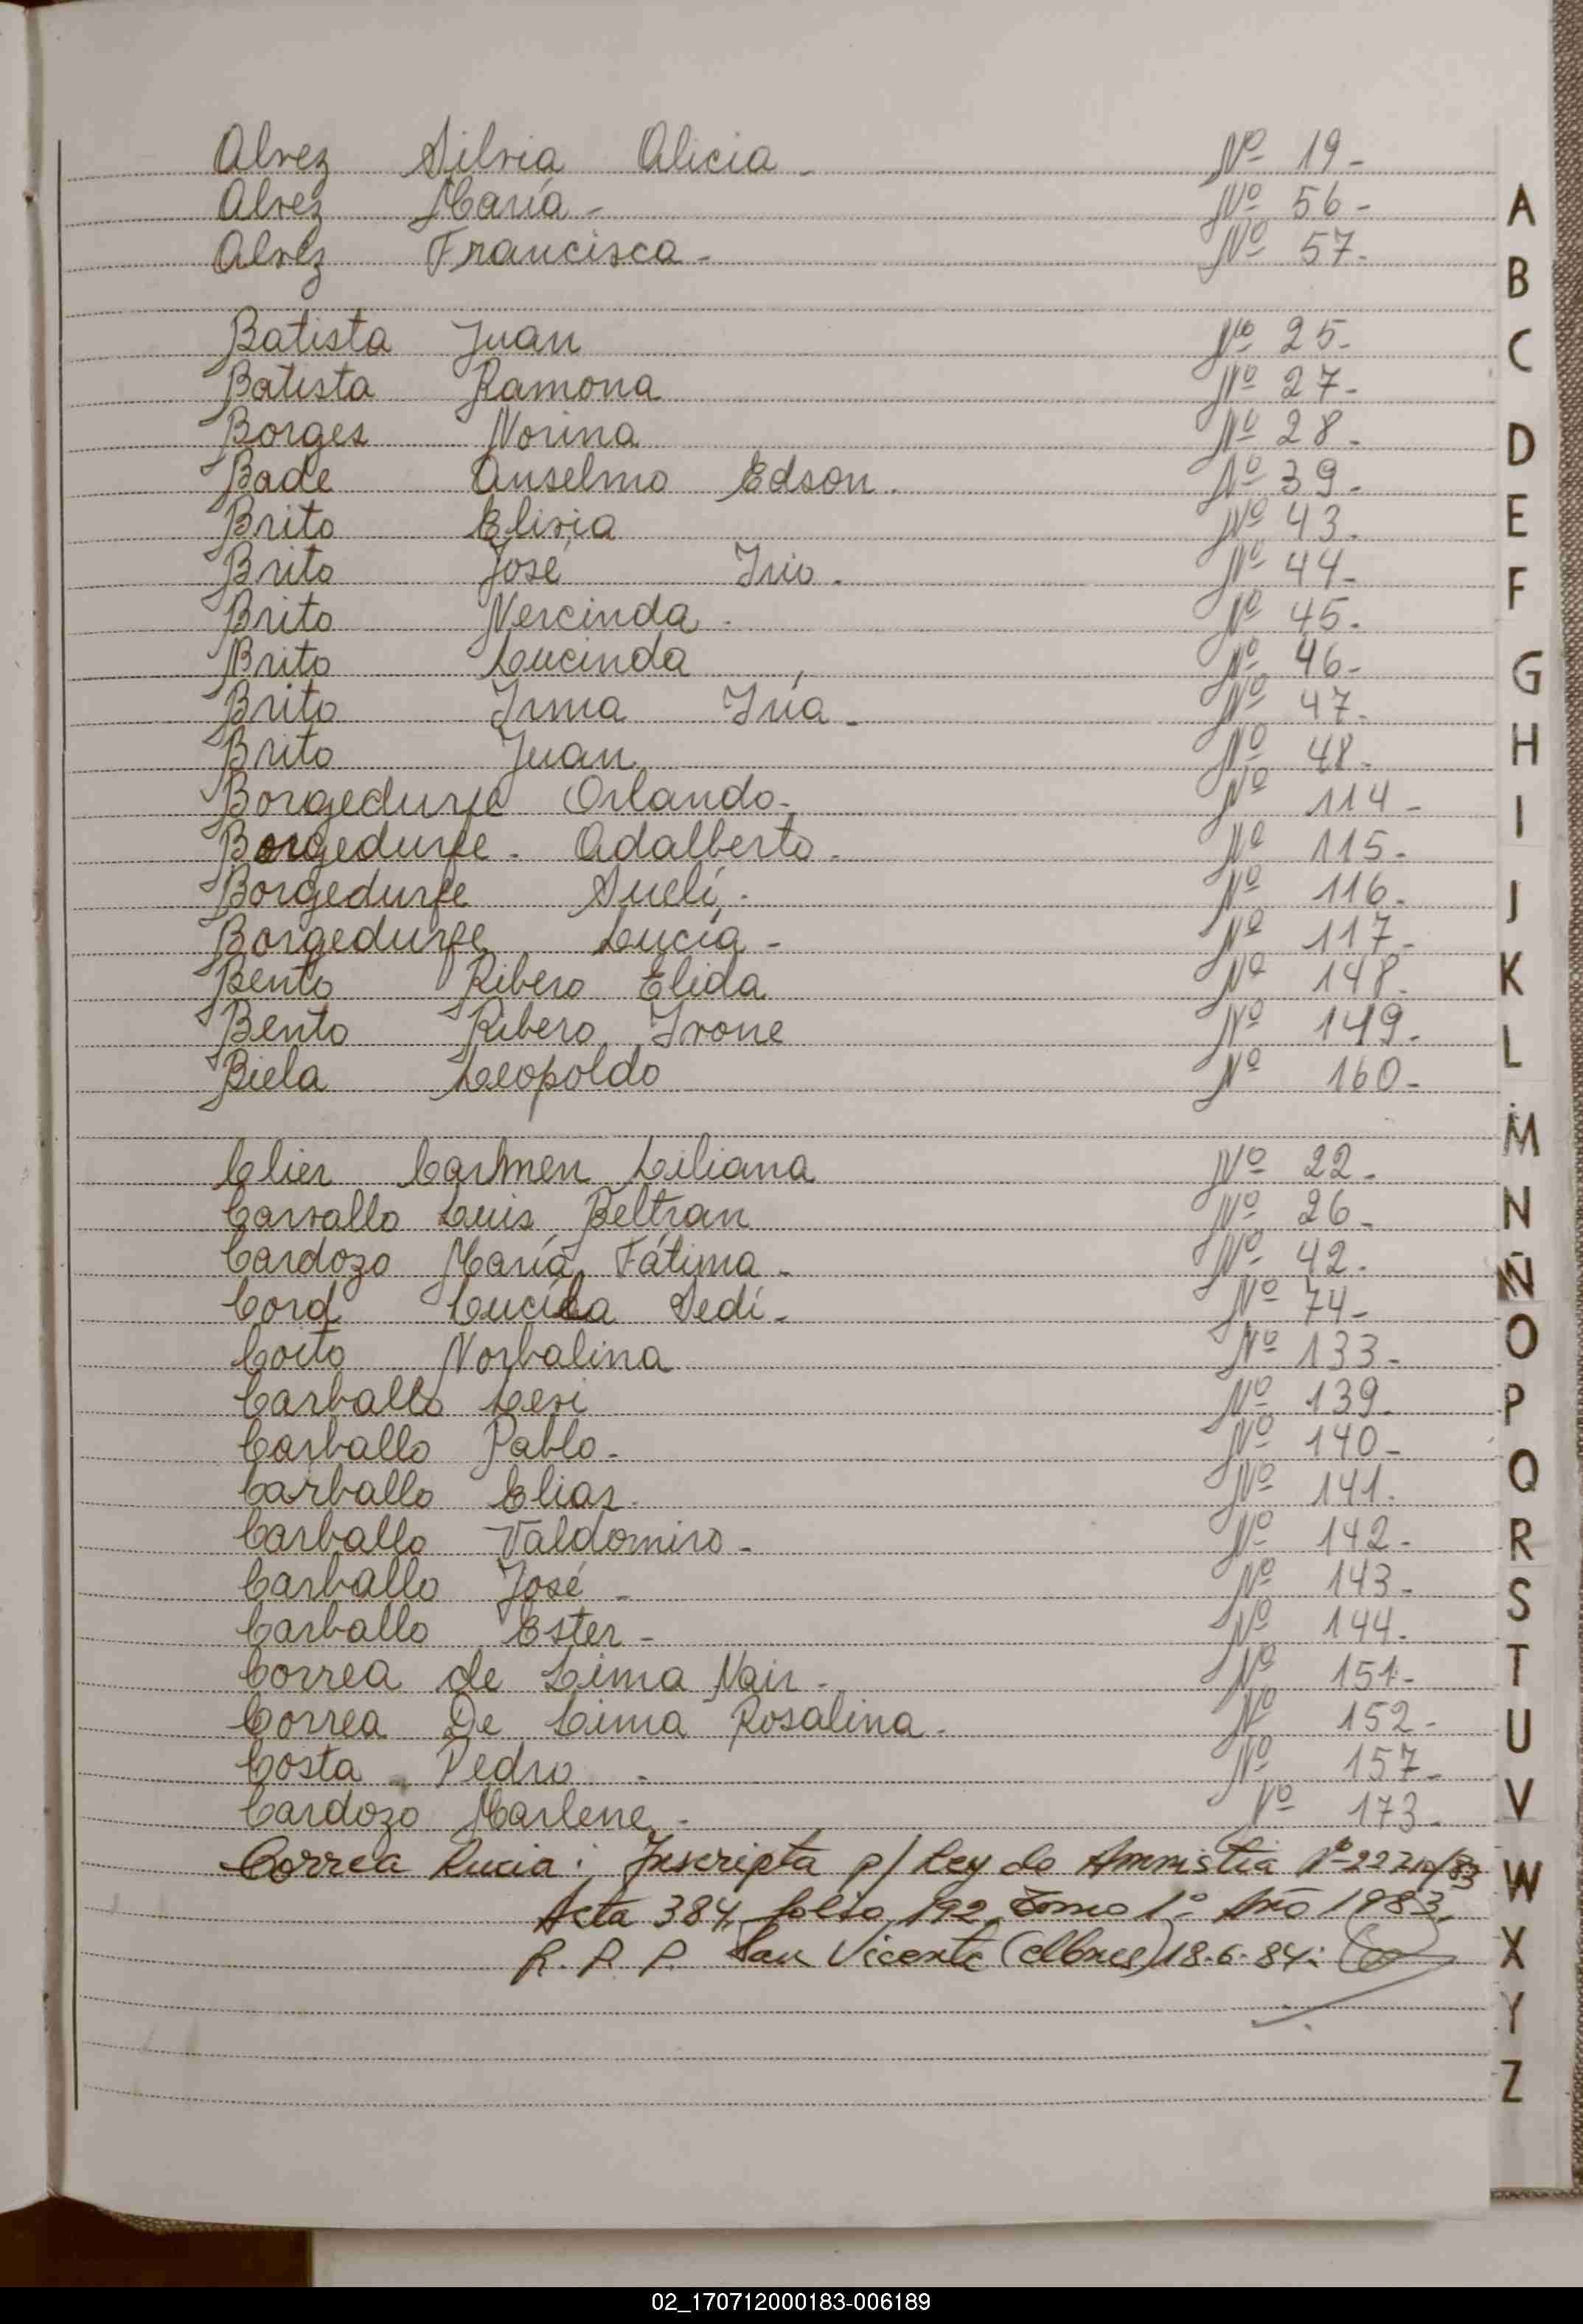 Alvez Silvia Alicia - Nº 19-
Alvez María - Nº 56-
Alvez Francisca - Nº 57-
Batista Juan Nº 25-
Batista Ramona Nº 27-
Borges Norina Nº 28-
Bade Anselmo Edson. Nº 39-
Brito Elivia Nº 43.
Brito José Irio. Nº 44-
Brito Nercinda - Nº 45-
Brito Lucinda Nº 46-
Brito Irma Iría - Nº 47-
Brito Juan Nº 48-
Borgedurfe Orlando- Nº 114-
Borgedurfe - Adalberto - Nº 115-
Borgedurfe Suelí - Nº 116-
Borgedurfe Lucía - Nº 117-
Bento Ribero Elida Nº 148-
Bento Ribero Ivone Nº 149-
Biela Leopoldo Nº 160-
Clier Carmen Liliana Nº 22-
Carvallo Luis Beltran Nº 26-
Cardozo María Fátima - Nº 42-
Cord Lucila Sedí - Nº 74-
Coito Norbalina Nº 133-
Carballo Leri Nº 139-
Carballo Pablo - Nº 140-
Carballo Elias. Nº 141-
Carballo Valdomiro - Nº 142-
Carballo José - Nº 143-
Carballo Ester - Nº 144-
Correa de Lima Nair - Nº 151-
Correa De Lima Rosalina - Nº 152-
Costa Pedro - Nº 157-
Cardozo Marlene - Nº 173-
Correa Lucia: Inscripta p/ Ley de Amnistia Nº
Acta 384, folio 192, Tomo 1º Año 1983,
R. P. P. San Vicente (Mnes) 18-6-84:
A
B
C
D
E
F
G
H
I
J
K
L
M
N
Ñ
O
P
Q
R
S
T
U
V
W
X
Y
Z
02_170712000183-006189